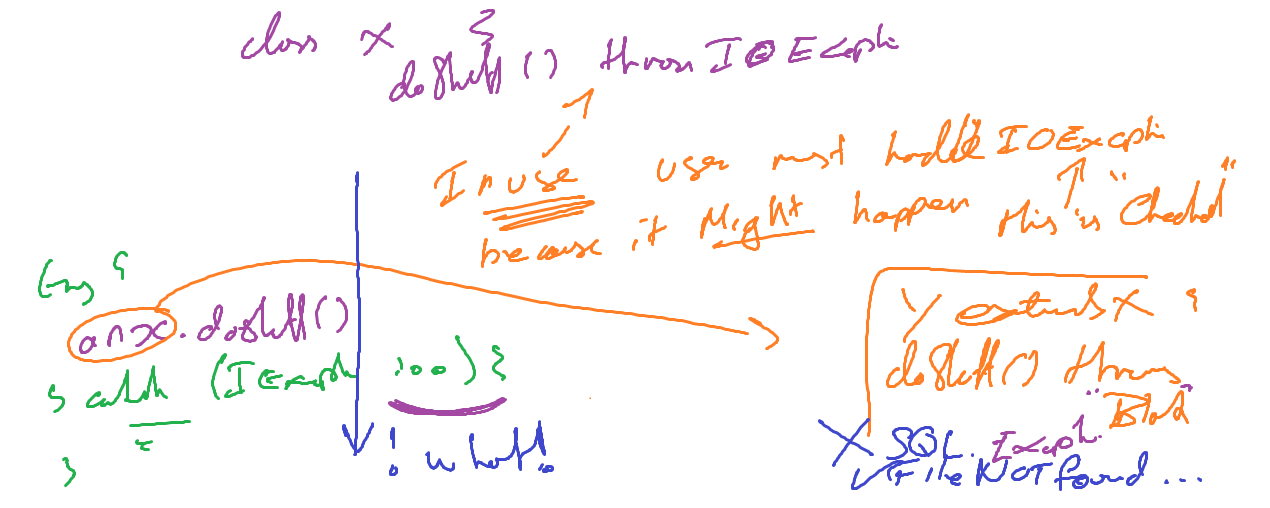 class X {
doStuff() throws IOException
In use user must handle IOException
because it Might happen this is "Checked"
try {
anX.doStuff()
} catch (IOException ioe) {
}
! what!
Y extends X {
doStuff() throws
"Blah"
X SQL. Exception
✓ File NOT found ...